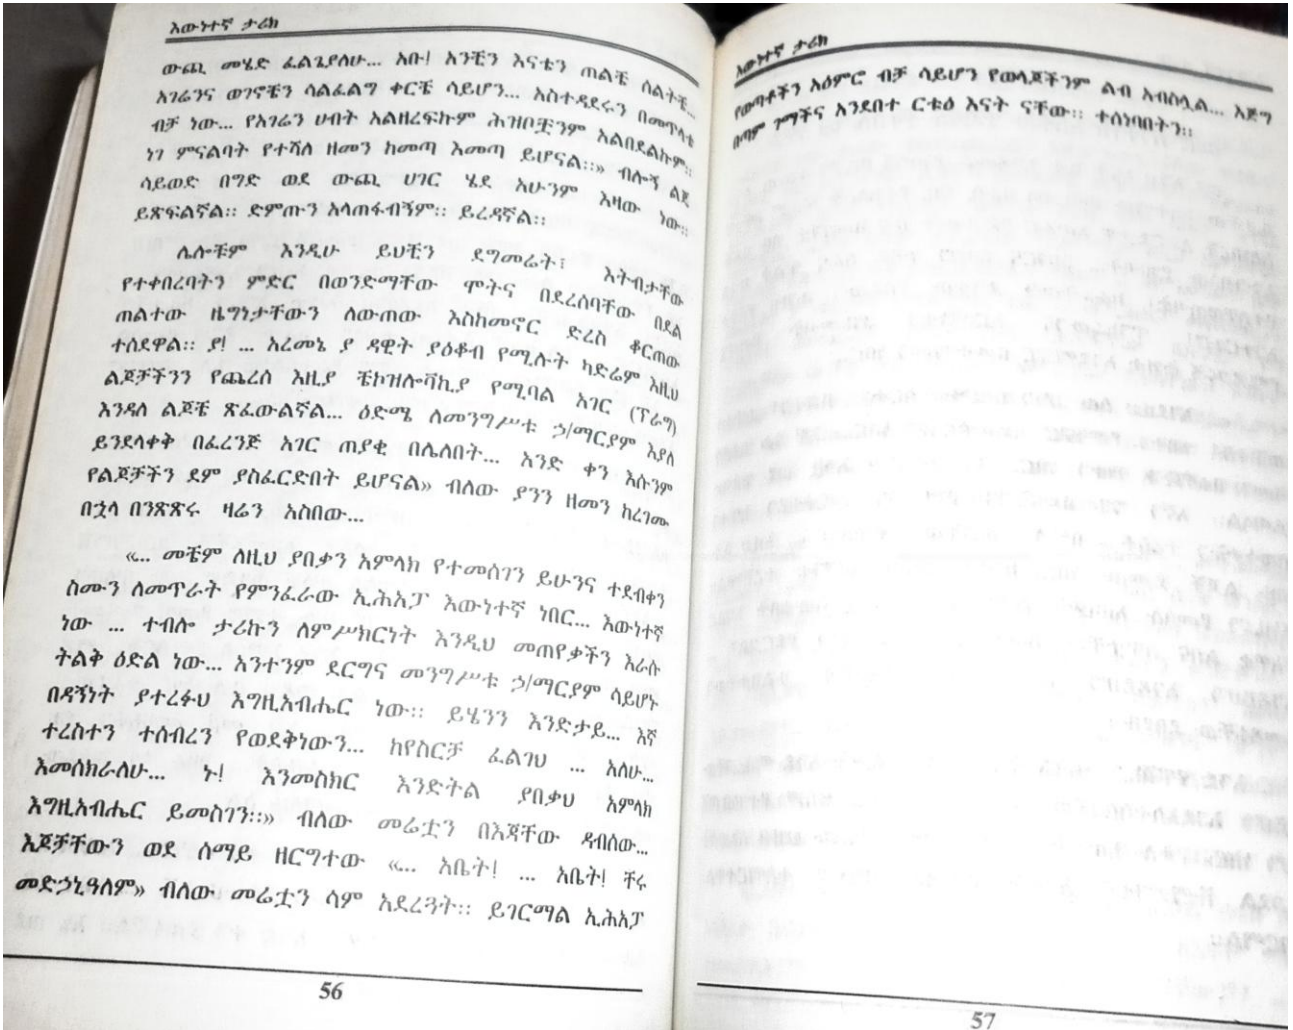 እውነተኛ ታሪክ
ውጪ መሄድ ፈልጌያለሁ... አቡ! አንቺን እናቴን ጠልቼ ሰልችቼ...
አገሬንና ወገኖቼን ሳልፈልግ ቀርቼ ሳይሆን... አስተዳደሩን በመጥላቴ
ብቻ ነው... የአገሬን ሀብት አልዘረፍኩም ሕዝቦቿንም አልበደልኩም።
ነገ ምናልባት የተሻለ ዘመን ከመጣ እመጣ ይሆናል።» ብሎኝ ልጄ
ሳይወድ በግድ ወደ ውጪ ሀገር ሄደ አሁንም እዛው ነው።
ይጽፍልኛል። ድምጡን አላጠፋብኝም። ይረዳኛል።
ሌሎቹም እንዲሁ ይህቺን ደግመሬት፣ እትብታቸው
የተቀበረባትን ምድር በወንድማቸው ሞትና በደረሰባቸው በደል
ጠልተው ዜግነታቸውን ለውጠው እስከመኖር ድረስ ቆርጠው
ተሰደዋል። ያ! ... አረመኔ ያ ዳዊት ያዕቆብ የሚሉት ካድሬም እዚህ
ልጆቻችንን የጨረሰ እዚያ ቼኮዝሎቫኪያ የሚባል አገር (ፕራግ)
እንዳለ ልጆቼ ጽፈውልኛል... ዕድሜ ለመንግሥቱ ኃ/ማርያም እያለ
ይንደላቀቅ በፈረንጅ አገር ጠያቂ በሌለበት... አንድ ቀን እሱንም
የልጆቻችን ደም ያስፈርድበት ይሆናል» ብለው ያንን ዘመን ከረገሙ
በኋላ በንጽጽሩ ዛሬን አስበው...
«... መቼም ለዚህ ያበቃን አምላክ የተመሰገን ይሁንና ተደብቀን
ስሙን ለመጥራት የምንፈራው ኢሕአፓ እውነተኛ ነበር... እውነተኛ
ነው ... ተብሎ ታሪኩን ለምሥክርነት እንዲህ መጠየቃችን እራሱ
ትልቅ ዕድል ነው... አንተንም ደርግና መንግሥቱ ኃ/ማርያም ሳይሆኑ
በዳኝነት ያተረፉህ እግዚአብሔር ነው። ይሄንን እንድታይ... እኛ
ተረስተን ተሰብረን የወደቅነውን... ከየስርቻ ፈልገህ ... አለሁ...
እመሰክራለሁ... ኑ! እንመስክር እንድትል ያበቃህ አምላክ
እግዚአብሔር ይመስገን።» ብለው መሬቷን በእጃቸው ዳብሰው...
እጆቻቸውን ወደ ሰማይ ዘርግተው «... አቤት! ... አቤት! ቸሩ
መድኃኒዓለም» ብለው መሬቷን ሳም አደረጓት። ይገርማል ኢሕአፓ
56
እውነተኛ ታሪክ
የወጣቶችን አዕምሮ ብቻ ሳይሆን የወላጆችንም ልብ አብስሏል... እጅግ
በጣም ጐማችና አንደበተ ርቱዕ እናት ናቸው። ተሰነባበትን።
57